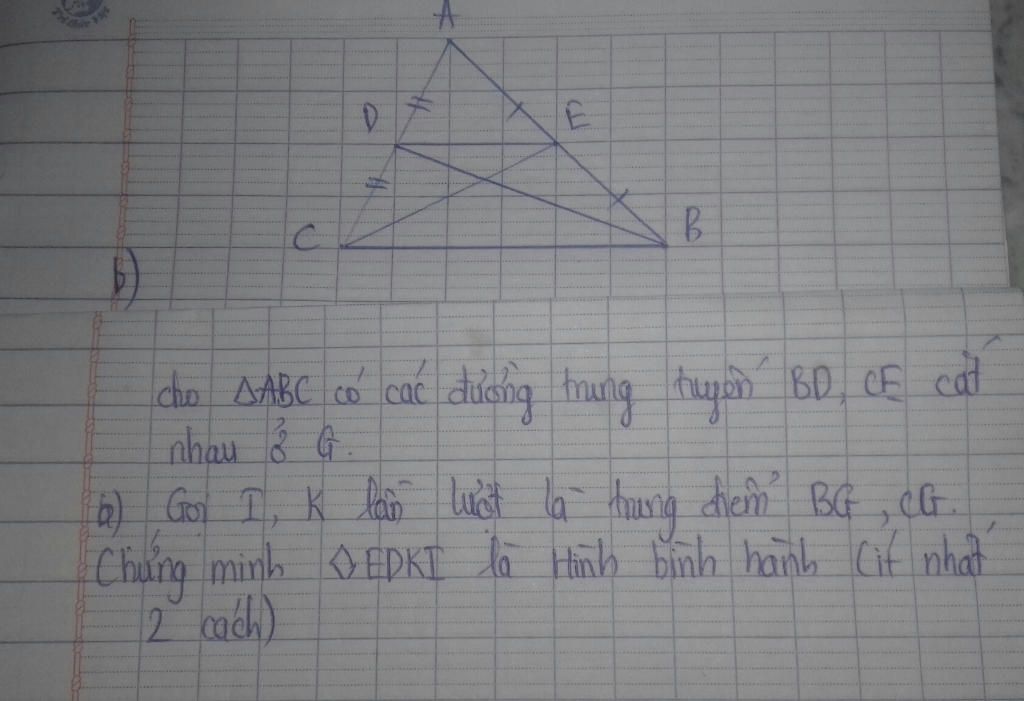 A
D
E
C
B
b)
cho △ABC có các đường trung tuyến BD, CE cắt
nhau ở G.
b) Gọi I, K lần lượt là trung điểm BG, CG.
Chứng minh ◇EDKI là Hình bình hành (ít nhất
2 cách)